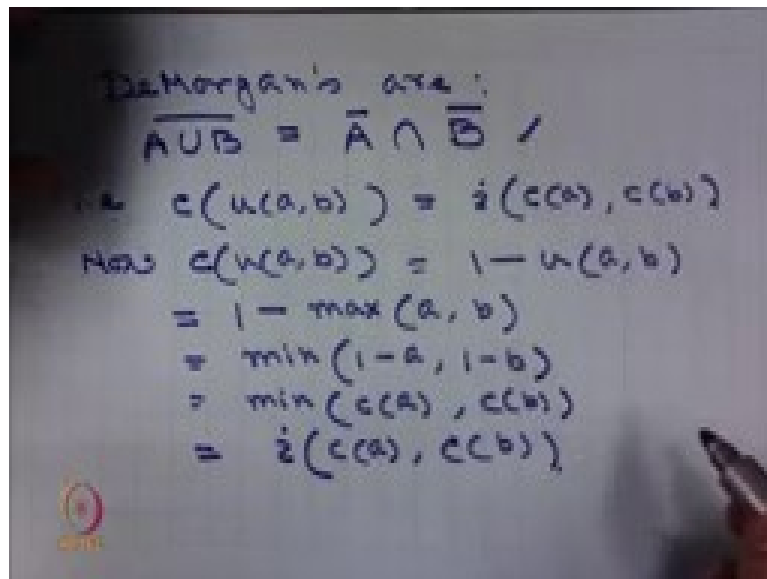 DeMorgan's are :
\overline{A∪B} = \overline{A} ∩ \overline{B}
i.e c(u(a,b)) = i(c(a), c(b))
Now c(u(a,b)) = 1 − u(a,b)
= 1 − max(a, b)
= min(1−a, 1−b)
= min(c(a), c(b))
= i(c(a), c(b))
NPTEL